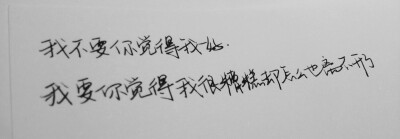 我不要你觉得我好.
我要你觉得我很糟糕却怎么也离不开